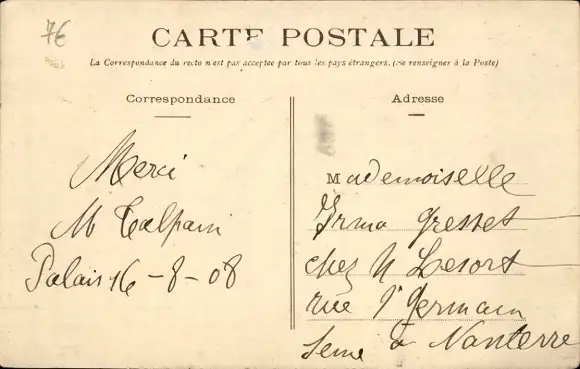 7€
CARTE POSTALE
La Correspondance du recto n'est pas acceptée par tous les pays étrangers. (Se renseigner à la Poste)
Correspondance
Adresse
Merci
M Talpain
Palais 16-8-08
Mademoiselle
Irma Gresset
chez M Lesort
rue St Germain
Seine à Nanterre